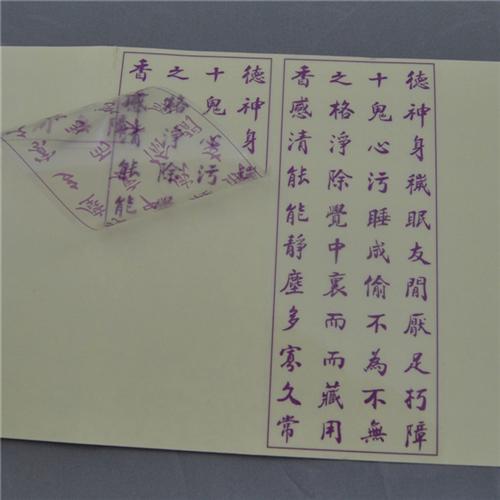 香之十德
格鬼神
清淨身
能除污
能
香之十德
感格鬼神
清淨心身
能除污穢
能覺睡眠
靜中成友
塵裏偷閒
多而不厭
寡而為足
久藏不朽
常用無障